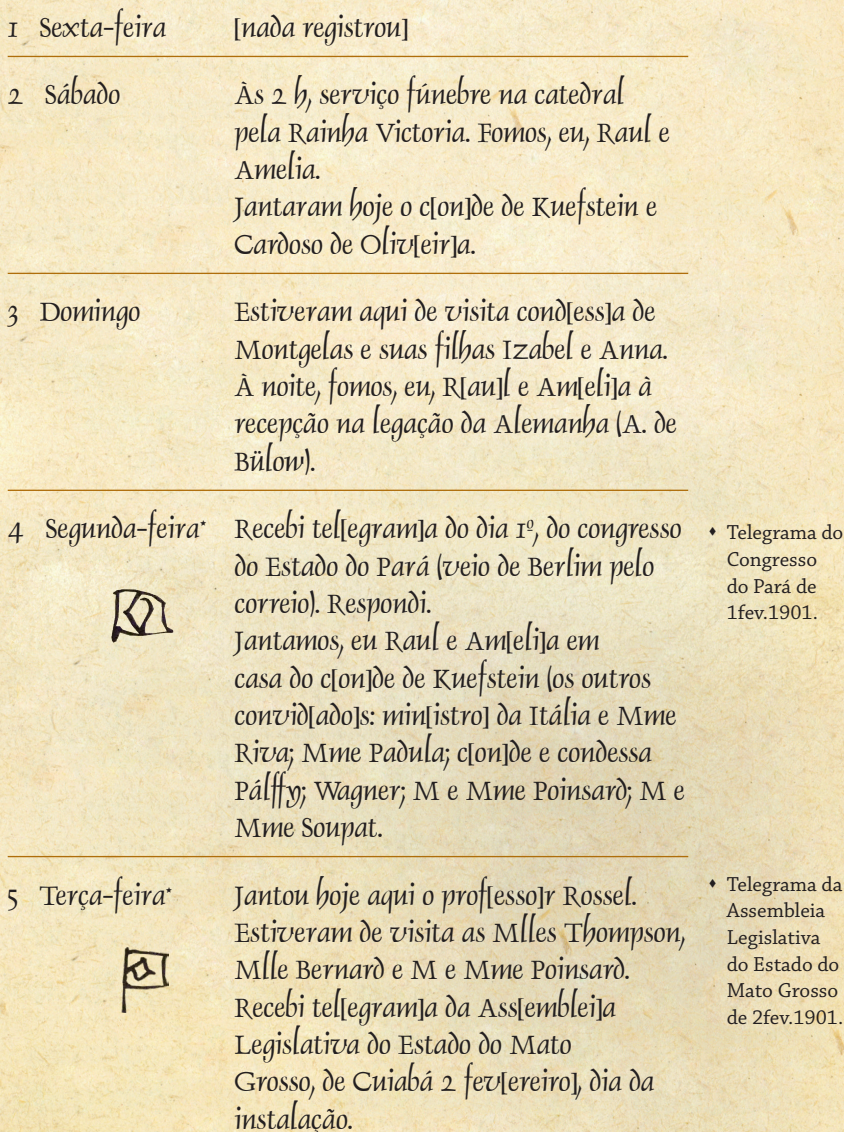 1 Sexta-feira [nada registrou]
2 Sábado Às 2 h, serviço fúnebre na catedral
pela Rainha Victoria. Fomos, eu, Raul e
Amelia.
Jantaram hoje o c[on]de de Kuefstein e
Cardoso de Oliv[eir]a.
3 Domingo Estiveram aqui de visita cond[ess]a de
Montgelas e suas filhas Izabel e Anna.
À noite, fomos, eu, R[au]l e Am[eli]a à
recepção na legação da Alemanha (A. de
Bülow).
4 Segunda-feira* Recebi tel[egram]a do dia 1º, do congresso
do Estado do Pará (veio de Berlim pelo
correio). Respondi.
Jantamos, eu Raul e Am[eli]a em
casa do c[on]de de Kuefstein (os outros
convid[ado]s: min[istro] da Itália e Mme
Riva; Mme Padula; c[on]de e condessa
Pálffy; Wagner; M e Mme Poinsard; M e
Mme Soupat.
♦ Telegrama do
Congresso
do Pará de
1fev.1901.
5 Terça-feira* Jantou hoje aqui o prof[esso]r Rossel.
Estiveram de visita as Mlles Thompson,
Mlle Bernard e M e Mme Poinsard.
Recebi tel[egram]a da Ass[emblei]a
Legislativa do Estado do Mato
Grosso, de Cuiabá 2 fev[ereiro], dia da
instalação.
♦ Telegrama da
Assembleia
Legislativa
do Estado do
Mato Grosso
de 2fev.1901.